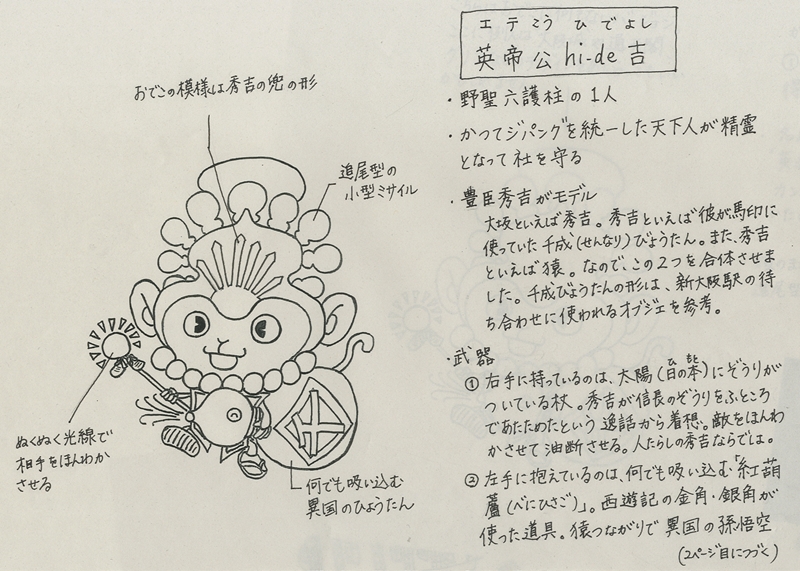 おでこの模様は秀吉の兜の形
追尾型の
小型ミサイル
ぬくぬく光線で
相手をほんわか
させる
何でも吸い込む
異国のひょうたん
エテこう ひでよし
英帝公 hi-de 吉
・野聖六護柱の1人
・かつてジパングを統一した天下人が精霊
となって社を守る
・豊臣秀吉がモデル
大坂といえば秀吉。秀吉といえば彼が馬印に
使っていた千成(せんなり)びょうたん。また、秀吉
といえば猿。なので、この2つを合体させま
した。千成びょうたんの形は、新大阪駅の待
ち合わせに使われるオブジェを参考。
・武器
① 右手に持っているのは、太陽(日の本)にぞうりが
ひ もと
ついている杖。秀吉が信長のぞうりをふところ
であたためたという逸話から着想。敵をほんわ
かさせて油断させる。人たらしの秀吉ならでは。
② 左手に抱えているのは、何でも吸い込む「紅葫
蘆(べにひさご)」。西遊記の金角・銀角が
使った道具。猿つながりで異国の孫悟空
(2ページ目につづく)